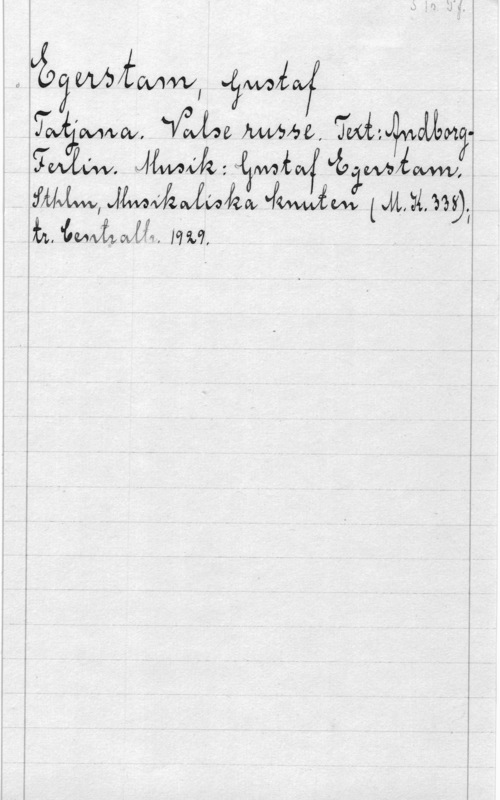 Egerstam, Gustaf
Tatjana. Valse russe. Text: Andborg-
Ferlin. Musik: Gustaf Egerstam.
Sthlm, Musikaliska knuten (M.K. 338);
tr. Centraltr. 1929.